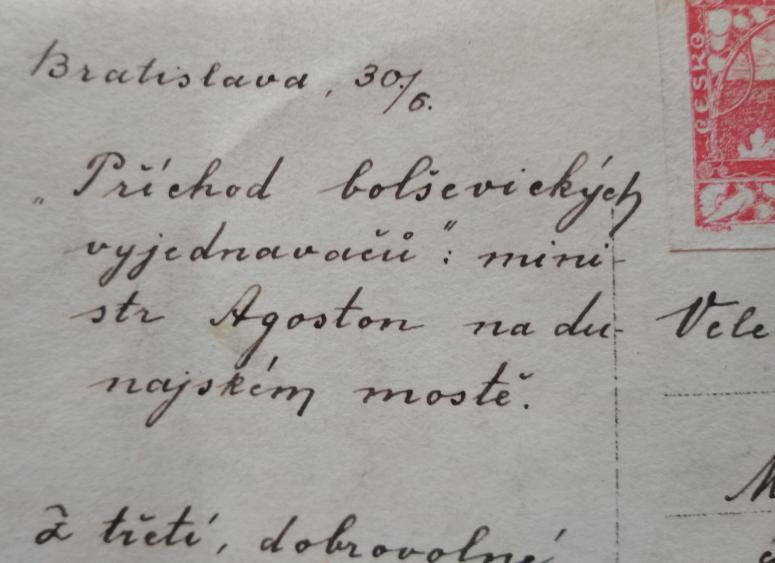 Bratislava, 30/6.
„Příchod bolševických
vyjednavačů": mini-
str Agoston na du-
najském mostě.
Z třetí, dobrovolné
ČESKO
Vele